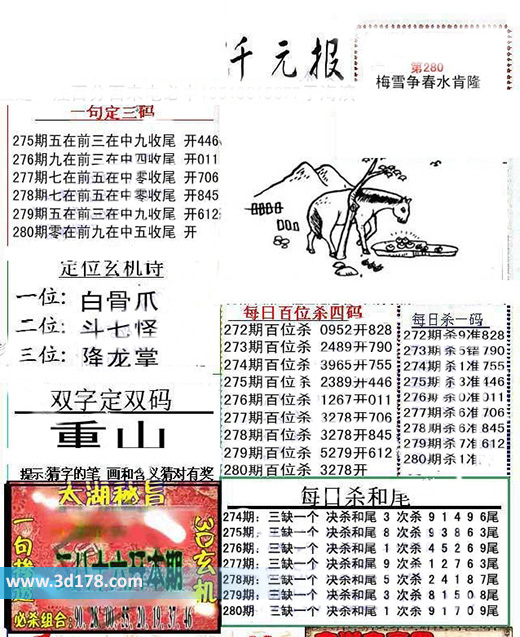 仟元报
第280
梅雪争春水肯隆
一句定三码
275期五在前三在中九收尾 开446
276期九在前二在中四收尾 开011
277期七在前五在中零收尾 开706
278期七在前五在中零收尾 开845
279期五在前三在中九收尾 开612
280期零在前九在中五收尾 开
定位玄机诗
一位: 白骨爪
二位: 斗七怪
三位: 降龙掌
每日百位杀四码
272期百位杀 0952开828
273期百位杀 2489开790
274期百位杀 3965开755
275期百位杀 2389开446
276期百位杀 1267开011
277期百位杀 3278开706
278期百位杀 3278开845
279期百位杀 5279开612
280期百位杀 3278开
每日杀一码
272期杀9准828
273期杀5错790
274期杀1准755
275期杀3准446
276期杀0准011
277期杀6准706
278期杀6准845
279期杀7准612
280期杀1准
双字定双码
重山
提示:猜字的笔 画和含义猜对有奖
太湖秘旨
3D玄机
必杀组合:
www.3d178.com
每日杀和尾
274期: 三缺一个 决杀和尾 3 次杀 9 1 4 9 6尾
275期: 三缺一个 决杀和尾 8 次杀 9 3 8 6 3尾
276期: 三缺一个 决杀和尾 1 次杀 4 5 2 6 9尾
277期: 三缺一个 决杀和尾 9 次杀 1 2 7 6 3尾
278期: 三缺一个 决杀和尾 5 次杀 2 4 1 8 7尾
279期: 三缺一个 决杀和尾 3 次杀 8 1 5 0 8尾
280期: 三缺一个 决杀和尾 1 次杀 9 1 7 0 9尾